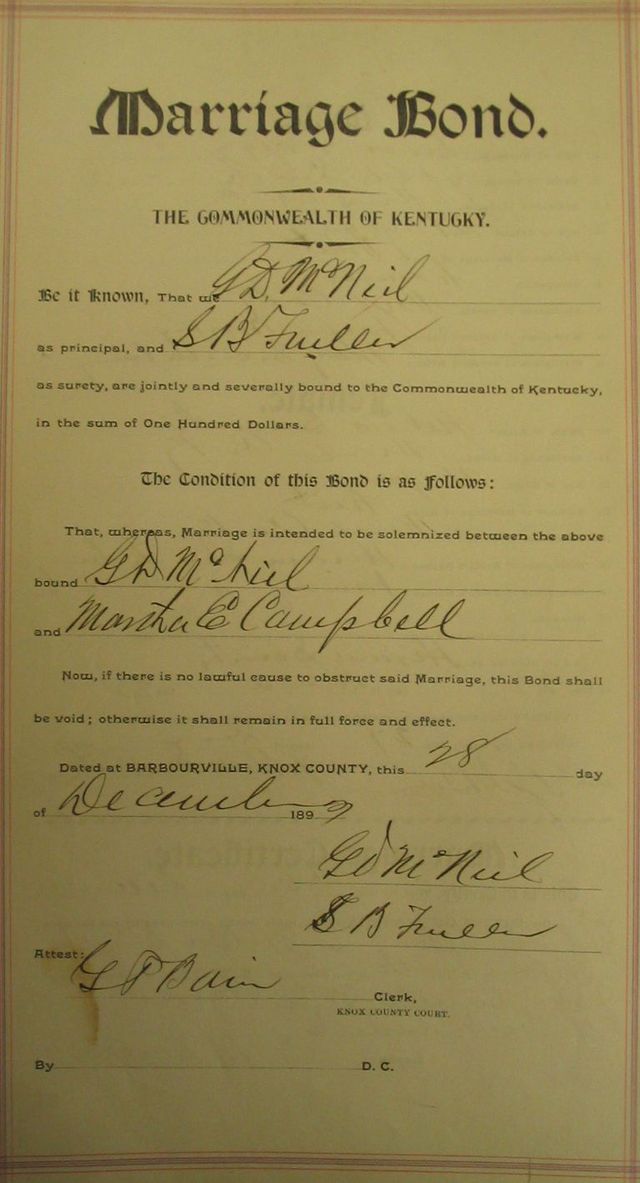 Marriage Bond.
THE COMMONWEALTH OF KENTUCKY.
Be it Known, That we G D. McNeil
as principal, and S B Fuller
as surety, are jointly and severally bound to the Commonwealth of Kentucky,
in the sum of One Hundred Dollars.
The Condition of this Bond is as Follows:
That, whereas, Marriage is intended to be solemnized between the above
bound G D McNiel
and Martha E Campbell
Now, if there is no lawful cause to obstruct said Marriage, this Bond shall
be void; otherwise it shall remain in full force and effect.
Dated at BARBOURVILLE, KNOX COUNTY, this 28 day
of December 189
G D McNeil
S B Fuller
Attest:
G Bain
Clerk,
KNOX COUNTY COURT.
By D. C.